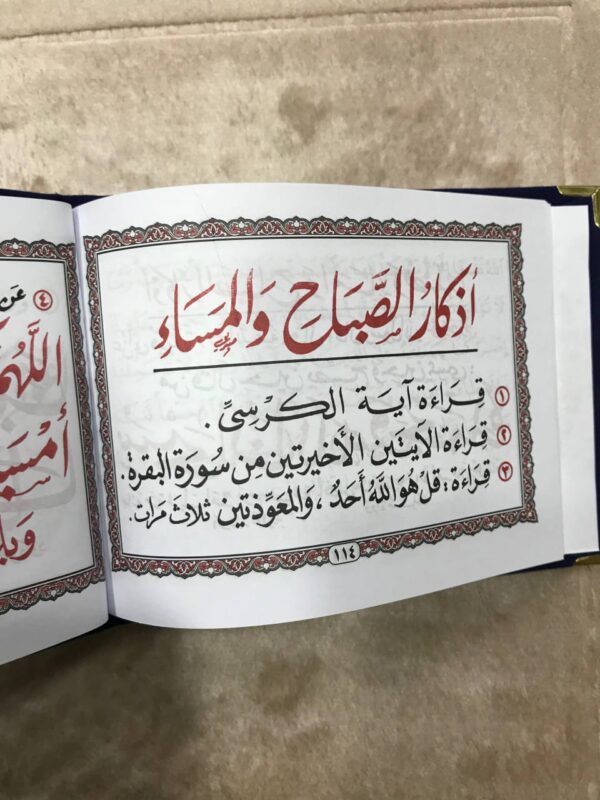 أذكارُ الصَّبَاحِ وَالمَسَاءِ
① قِرَاءَة آيَة الكرسِىِّ .
② قِرَاءَة الآيتَين الأخيرتين مِن سُورَة البقرة .
③ قِرَاءَة : قل هُوَ اللَّهُ أَحَدُ ، وَالمعَوِّذتين ثلاث مَرات .
١١٤
④ عَن
اللَّهُمَّ